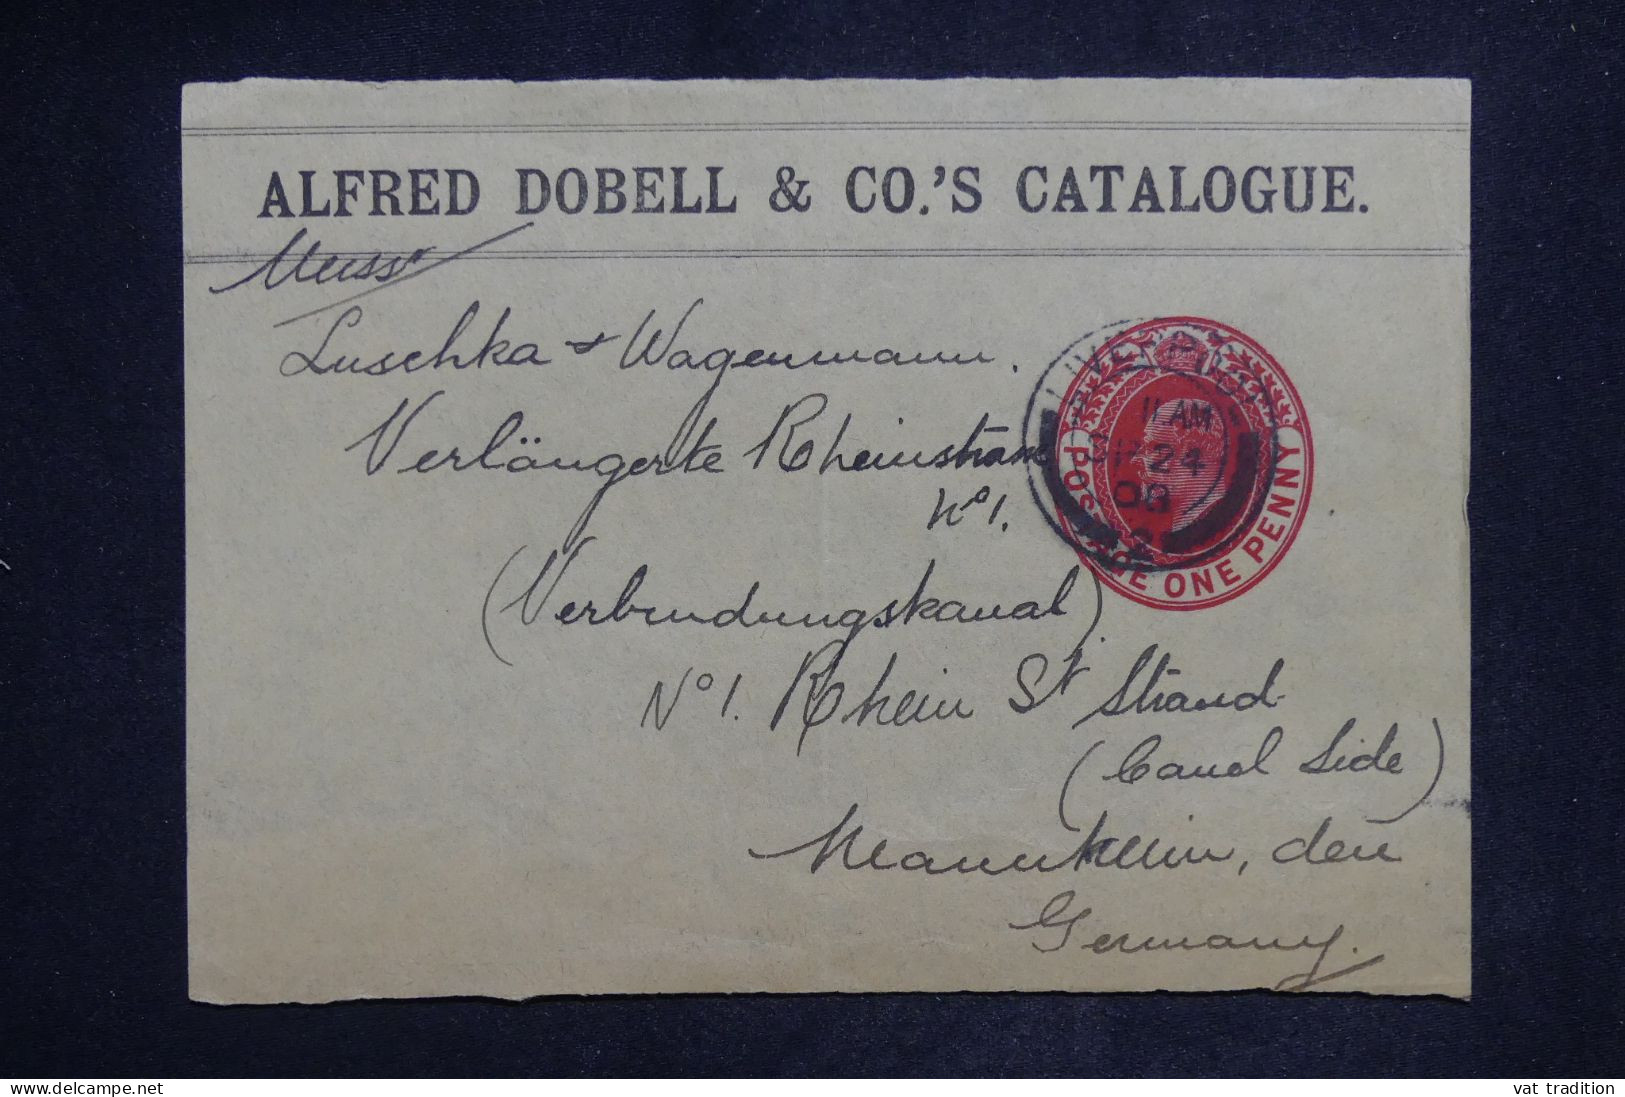 ALFRED DOBELL & CO.'S CATALOGUE.
Messrs
Luschka & Wagenmann.
Verlängerte Rheinstrasse
No 1.
(Verbindungskanal)
No 1. Rhein St Strand
(Canal Side)
Mannheim, den
Germany.
LIVERPOOL
11 AM
24
08
2
POSTAGE ONE PENNY
www.delcampe.net
vat tradition